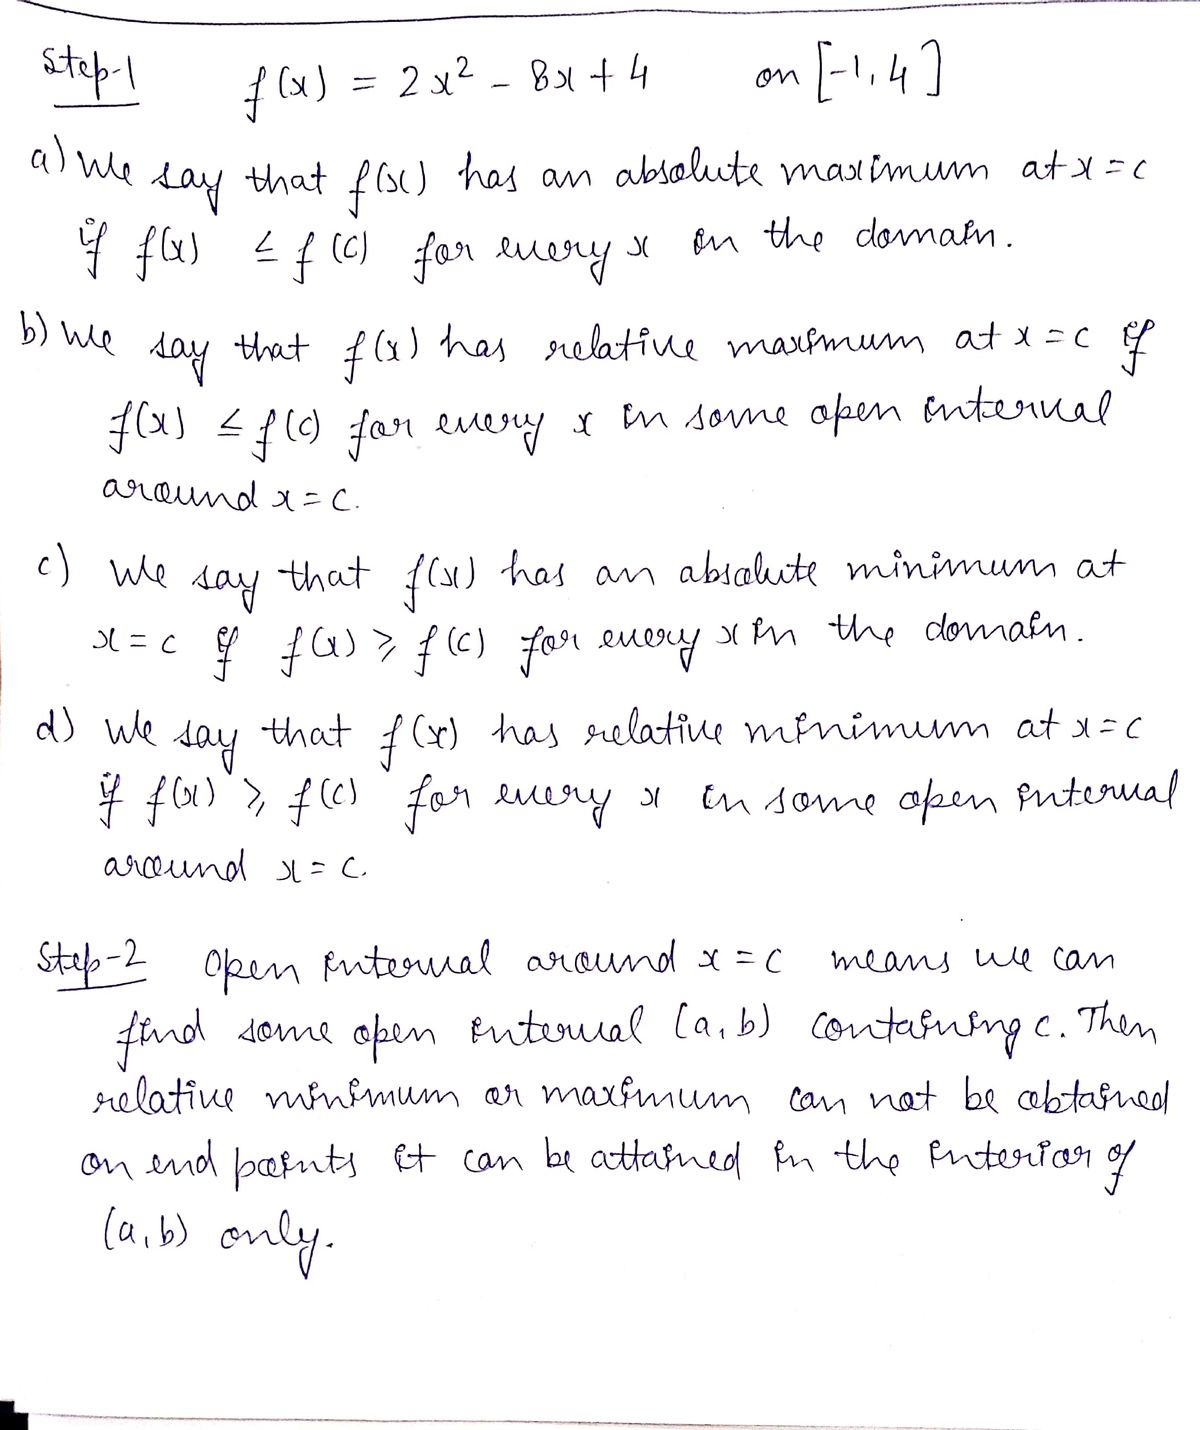 Step-1 f(x) = 2x² - 8x + 4 on [-1, 4]
a) We say that f(x) has an absolute maximum at x = c
if f(x) ≤ f(c) for every x in the domain.
b) We say that f(x) has relative maximum at x = c if
f(x) ≤ f(c) for every x in some open interval
around x = c.
c) We say that f(x) has an absolute minimum at
x = c if f(x) ≥ f(c) for every x in the domain.
d) We say that f(x) has relative minimum at x = c
if f(x) ≥ f(c) for every x in some open interval
around x = c.
Step-2 Open interval around x = c means we can
find some open interval (a, b) containing c. Then
relative minimum or maximum can not be obtained
on end points it can be attained in the interior of
(a, b) only.